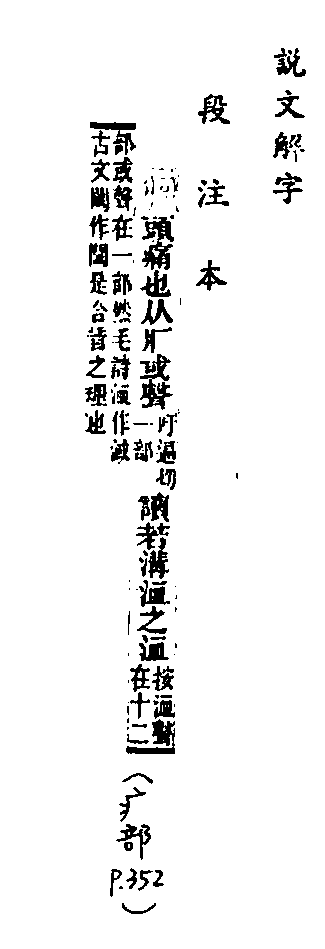 説文解字
段注本
頭痛也从疒或聲
吁逼切
一部
讀若溝洫之洫
按洫聲
在十二
部或聲在一部然毛詩洫作淢
古文閾作是合音之理也
(疒部
P.352)